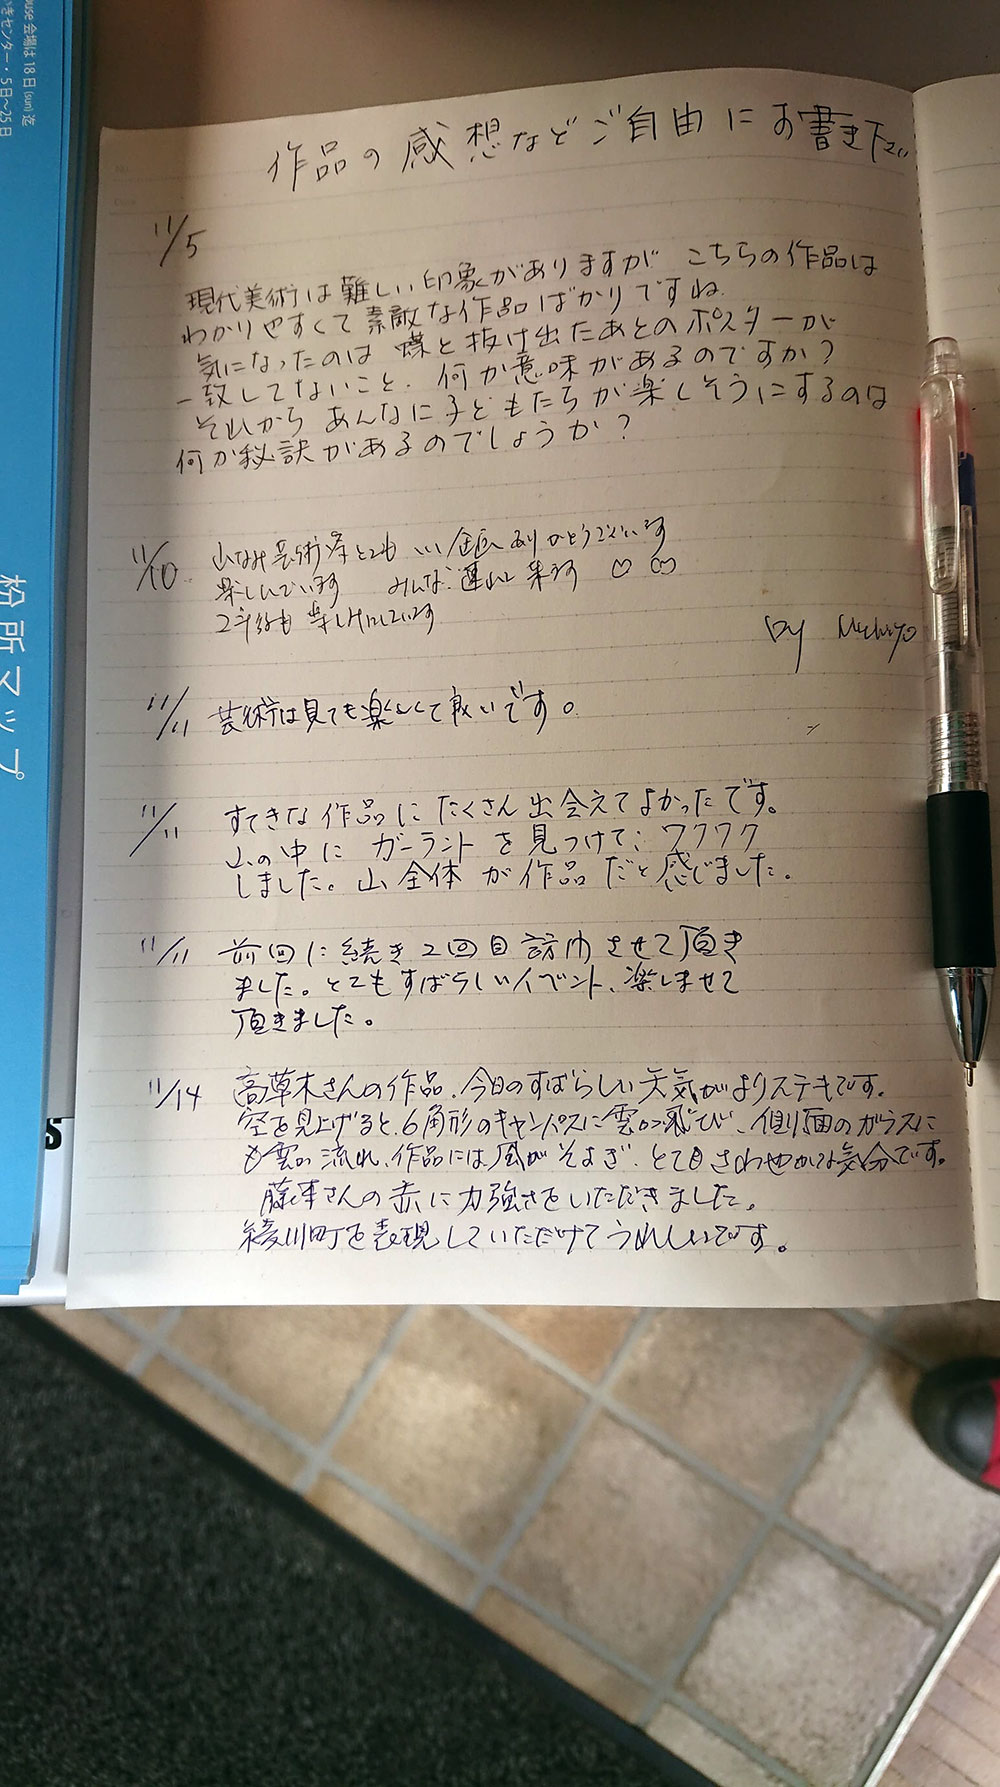 作品の感想などご自由にお書き下さい
11/5
現代美術は難しい印象がありますが こちらの作品は
わかりやすくて素敵な作品ばかりですね
気になったのは 蝶と抜け出たあとのポスターが
一致してないこと。何か意味があるのですか?
それから あんなに子どもたちが楽しそうにするのは
何か秘訣があるのでしょうか?
11/10 山なみ芸術祭とても いい企画ありがとうございます
楽しんでいます みんなご連れて来ます
2年後も楽しみにしています
by Michiyo
11/11 芸術は見ても楽しくて良いです。
11/11 すてきな作品にたくさん出会えてよかったです。
山の中に ガーラントを見つけて、ワクワク
しました。山全体が作品だと感じました。
11/11 前回に続き2回目訪問させて頂き
ました。とてもすばらしいイベント、楽しませて
頂きました。
11/14 高草木さんの作品、今日のすばらしい天気がよりステキです。
空を見上げると、6角形のキャンパスに雲が飛び、側面のガラスに
も雲の流れ、作品には風がそよぎ、とてもさわやかな気分です。
藤本さんの赤に力強さをいただきました。
綾川町を表現していただけてうれしいです。
use 会場は18日(sun)迄
きセンター・5日〜25日
枌所マップ
S